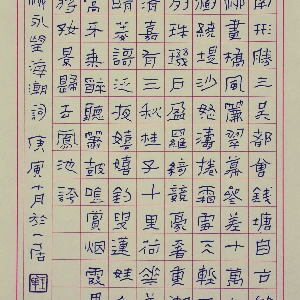 南形勝三吳都會錢塘自古
柳畫橋風簾翠幕參差十萬
繞堤沙怒濤捲霜雪天塹
列珠璣戶盈羅綺競豪奢重
清嘉有三秋桂子十里荷花
晴菱謌泛夜嬉嬉釣叟蓮娃
高牙乘醉聽簫鼓吟賞烟霞
好景歸去鳳池誇
柳永望海潮詞 庚 十月於一居